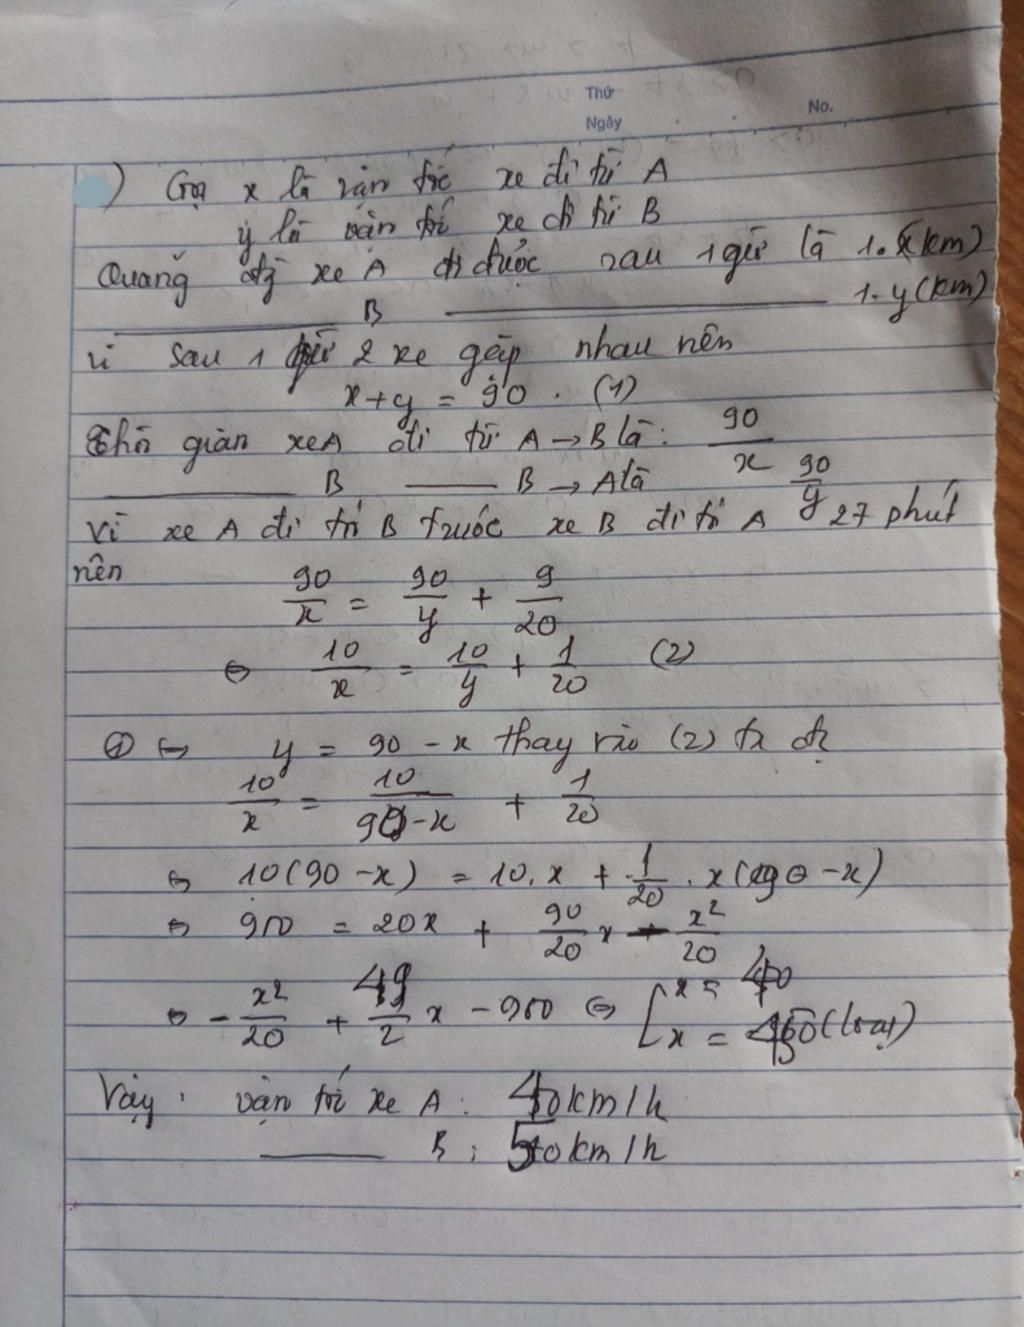 Thứ
Ngày
No.
) Gọi x là vận tốc xe đi từ A
y là vận tốc xe đi từ B
Quãng đg xe A đi được sau 1 giờ là 1.x(km)
——— B ——— 1.y(km)
vì sau 1 giờ 2 xe gặp nhau nên
x + y = 90. (1)
Thời gian xe A đi từ A → B là: 90/x
——— B ——— B → A là 90/y
Vì xe A đi tới B trước xe B đi tới A 27 phút
nên
90/x = 90/y + 9/20
⇔ 10/x = 10/y + 1/20 (2)
① ⇔ y = 90 - x thay vào (2) ta đc
10/x = 10/(90-x) + 1/20
⇔ 10(90 - x) = 10.x + 1/20 . x(90 - x)
⇔ 900 = 20x + 90/20 x - x²/20
⇔ - x²/20 + 49/2 x - 900 ⇔ [ x = 40
x = 450 (loại)
Vậy: vận tốc xe A: 40km/h
——— B: 50km/h